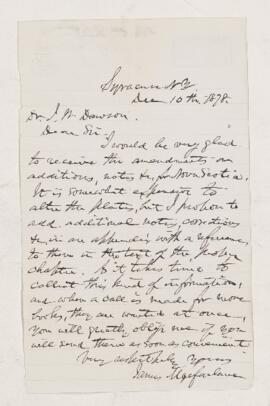 Syracuse N.Y.
Dec 10th 1878.
Dr. J. W. Dawson
Dear Sir
I would be very glad
to receive the amendments or
additions, notes &c, for Nova Scotia.
It is somewhat expensive to
alter the plates, but I propose to
add additional notes, corrections
&c in an appendix with a reference
to them in the text of the proper
chapter. As it takes time to
collect this kind of information,
and when a call is made for more
books, they are wanted at once,
you will greatly oblige me if you
will send them as soon as convenient
Very respectfully Yours
James Macfarlane